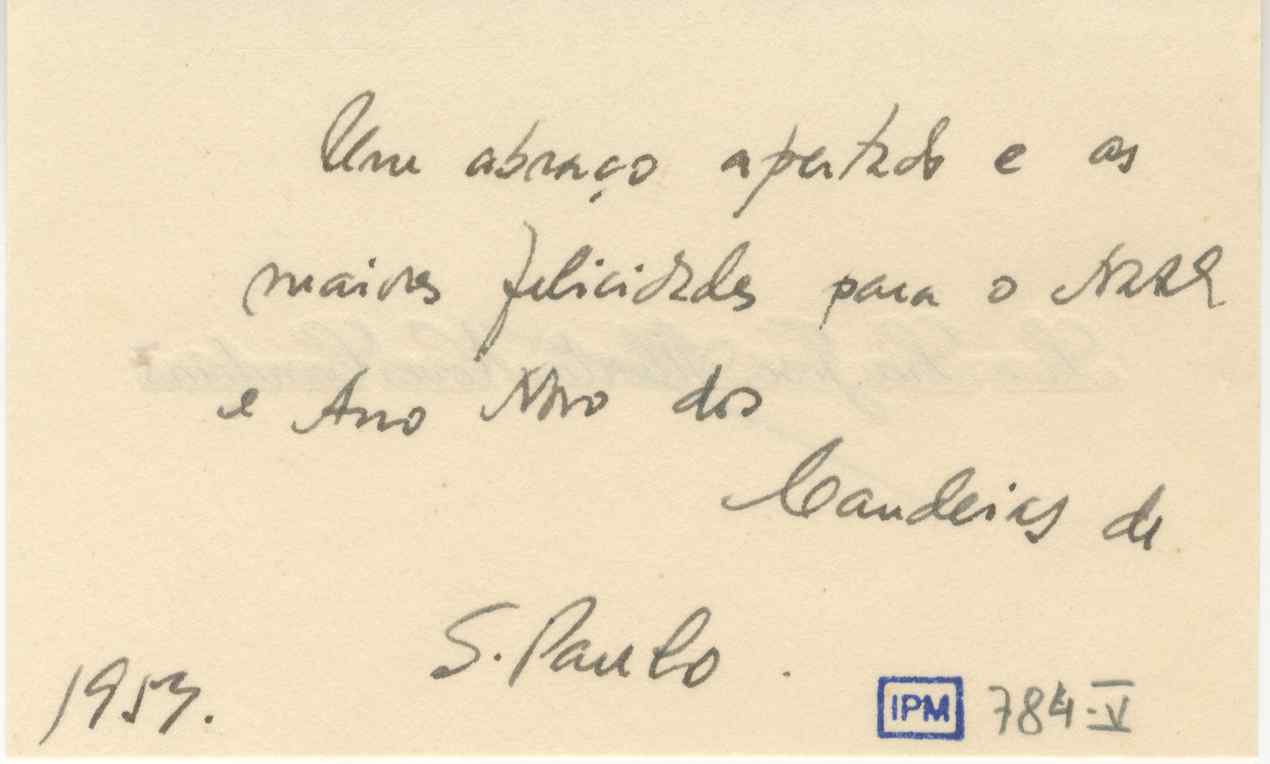 Um abraço apertado e as
maiores felicidades para o Natal
e Ano Novo dos
Candeias de
S. Paulo.
1953.
IPM 784-V